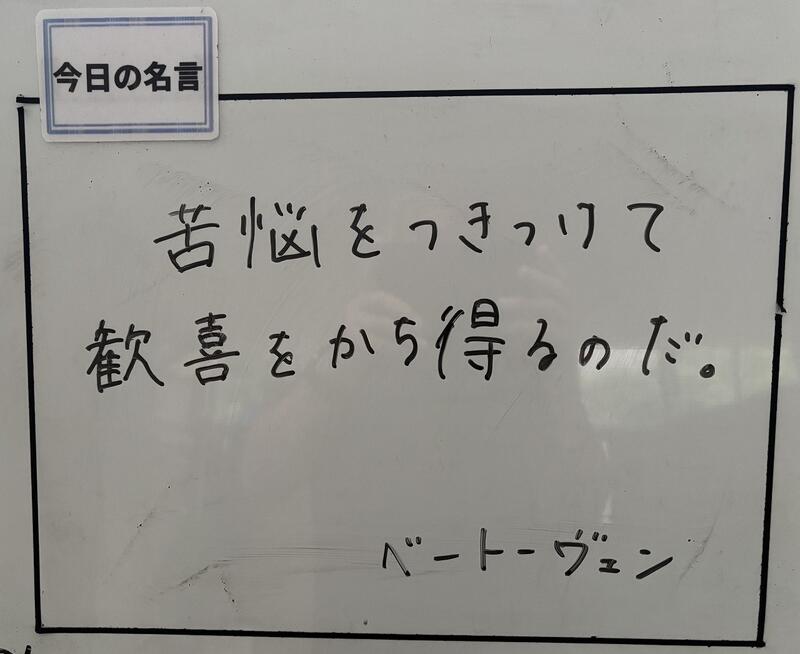 今日の名言
苦悩をつきつけて
歓喜をかち得るのだ。
ベートーヴェン